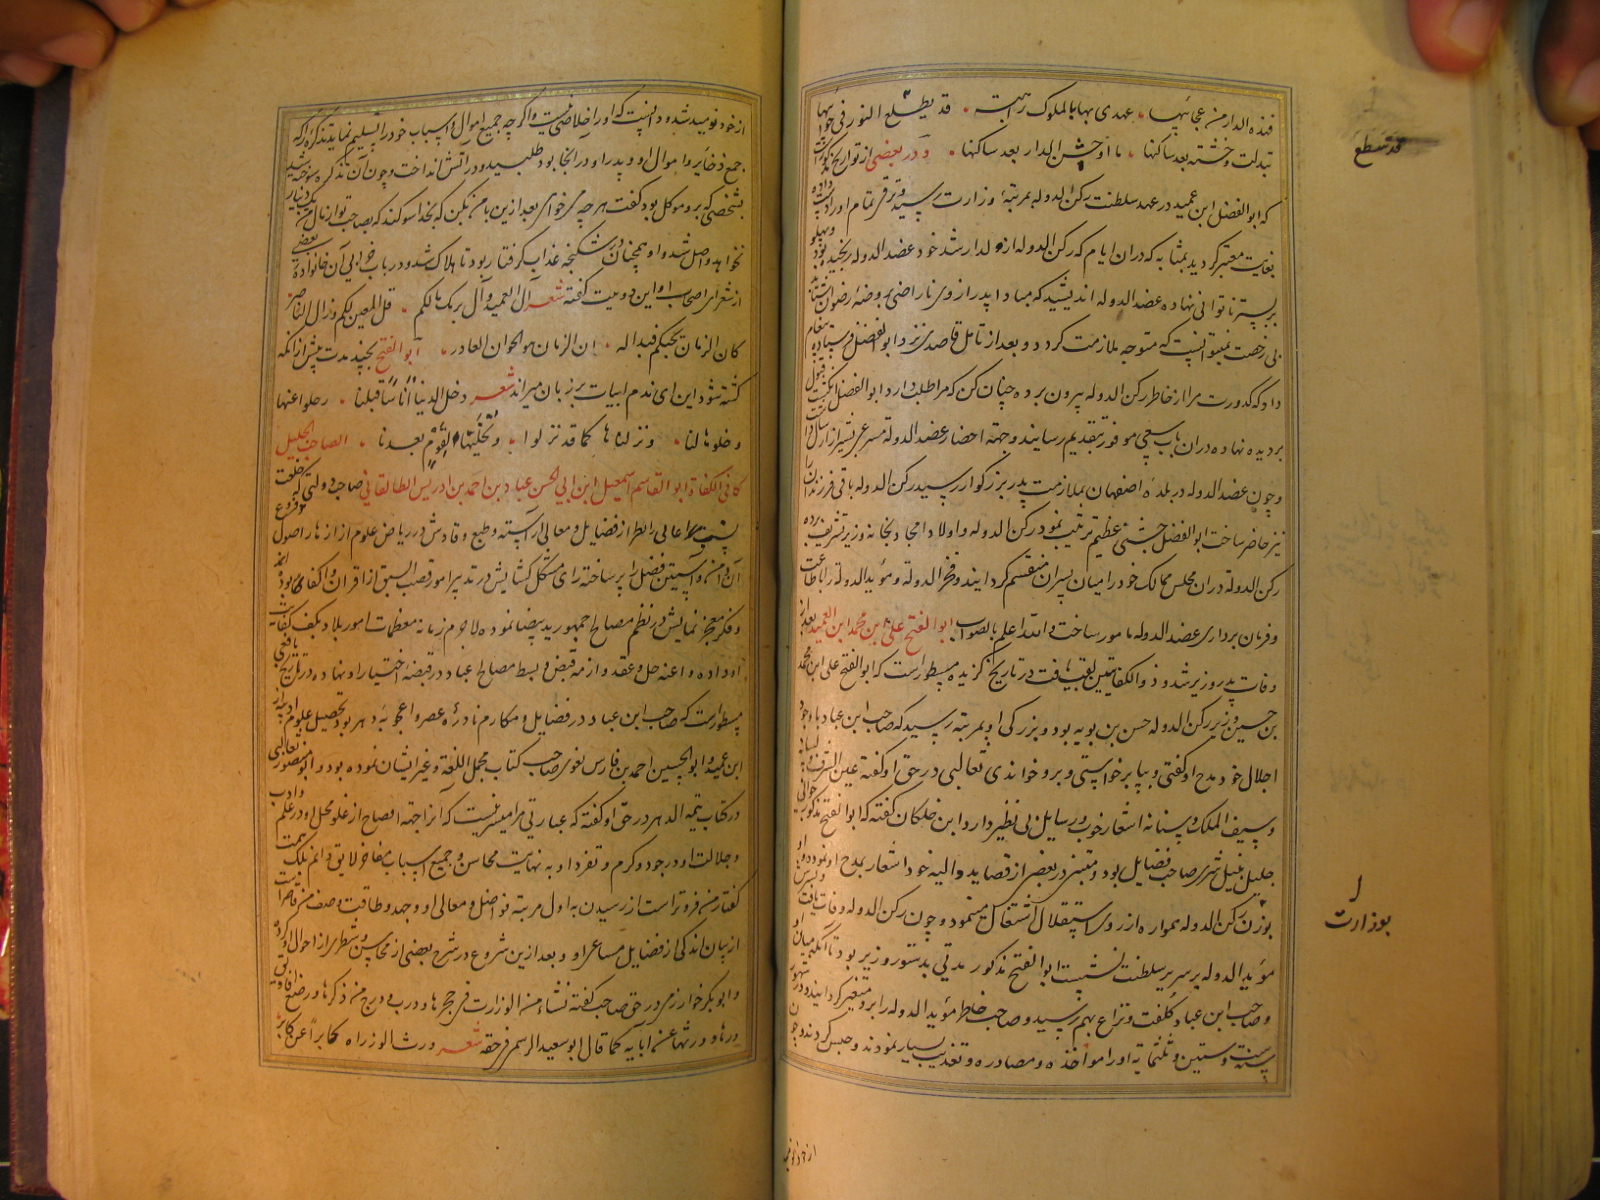 فهذه الدار من عجائبها عهدی بها بالملوک زاهیة قد یطلع النور فی جوانبها
تبدلت وحشة بعد ساکنها ما اوحش الدار بعد ساکنها و در بعضی از تواریخ مذکورست
که ابوالفضل ابن عمید در عهد سلطنت رکن الدوله بمرتبهٔ وزارت رسید و ترقی تمام او را دست داده
بغایت معتبر گردید بمثابه که دران ایام که رکن الدوله از ولد ارشد خود عضد الدوله رنجیده بود و پهلو
بر بستر ناتوانی نهاده عضد الدوله اندیشید که مبادا پدر از وی ناراضی بروضهٔ رضوان شتابد
بی رخصت نمیتوانست که متوجه ملازمت گردد و بعد از تامل قاصدی نزد ابوالفضل فرستاده پیغام
داد که کدورت مرا از خاطر رکن الدوله بیرون برده چنان کن که مرا طلب دارد ابوالفضل انگشت قبول
بر دیده نهاده دران باب سعی موفور بتقدیم رسانید و جهة احضار عضد الدوله مسرعی بشیراز ارسال داشت
و چون عضد الدوله در بلدهٔ اصفهان بملازمت پدر بزرگوار رسید رکن الدوله باقی فرزندان را
نیز حاضر ساخت ابوالفضل جشنی عظیم ترتیب نمود رکن الدوله و اولاد امجاد بخانهٔ وزیر تشریف برده
رکن الدوله دران مجلس ممالک خود را میان پسران منقسم گردانید و فخر الدوله و مؤید الدوله را باطاعت
و فرمان برداری عضد الدوله مامور ساخت والله اعلم بالصواب ابوالفتح علی بن محمد ابن العمید بعد از
وفات پدر وزیر شد و ذوالکفایتین لقب یافت در تاریخ گزیده مسطورست که ابوالفتح علی ابن محمد
بن حسین وزیر رکن الدوله حسن بن بویه بود و بزرگی او بمرتبه رسید که صاحب ابن عباد با وجود
اجلال خود مدح او گفتی و بپا برخواستی و برو خواندی ثعالبی در حق او گفته عین المشرق و لسان
و سیف الملک و سنانه اشعار خوب و رسایل بی نظیر دارد ابن خلکان گفته که ابوالفتح مذکور
جلیل نبیل سری صاحب فضایل بود و متنبی در بعضی از قصاید والیه خود اشعار بمدح او نموده و او
بوزن رکن الدوله همواره از روی استقلال اشتغال مینمود و چون رکن الدوله وفات یافت و پسرش
مؤید الدوله بر سریر سلطنت نشست ابوالفتح مذکور مدتی بدستور وزیر بود تا آنکه میان او
و صاحب ابن عباد کلفت و نزاع بهم رسید و صاحب خاطر مؤید الدوله را برو متغیر گردانید و در شهور
سنه ست و ستین و ثلثمایه او را مواخذه و مصادره و تعذیب بسیار نمودند و حبس کردند و چون
قد سطع
ل
بوزارت
از خود نومید شد و دانست که او را خلاصی نیست و اگر چه جمیع اموال و اسباب خود را تسلیم نماید تذکرهٔ که
جمع ذخایر و اموال او و پدر او در انجا بود طلبید و در آتش انداخت و چون آن تذکره سوخته شد
بشخصی که برو موکل بود گفت هرچه میخواهی بعد ازین با من بکن که بخدا سوگند که بصاحب تو از مال من یک دینار
نخواهد واصل شد و او همچنان در شکنجهٔ عذاب گرفتار بود تا هلاک شد و در باب خرابی آن خانواده بعضی
از شعرای اصحاب او این دو بیت گفته شعر آل العمید و آل برمک مالکم قل المعین لکم وزال الناصر
کان الزمان یحبکم فبدا له ان الزمان هو الخوان الغادر ابوالفتح بچند مدت پیش از آنکه
کشته شود این ابیات بر زبان میراند شعر دخل الدنیا اناس قبلنا رحلوا عنها
وخلوها لنا ونزلناها کما قد نزلوا ونخلیها لقوم بعدنا الصاحب الجلیل
کافی الکفاة ابوالقاسم اسمعیل ابن ابی الحسن عباد بن احمد بن ادریس الطالقانی صاحب دولتی که خلعت
را بطراز فضایل و معالی آراسته و طبع وقادش در ریاض علوم از ازهار اصول و فروع
آن دامن و آستین فضل را پر ساخته رای مشکل کشایش در تدبیر امور قصب السبق از اقران و اکفا ربوده
و فکر معجز نمایش در نظم مصالح جمهور ید بیضا نموده لاجرم زمانه معظمات امور بلاد بکف کفایت
او داده و اعنهٔ حل و عقد و ازمهٔ قبض و بسط مصالح عباد در قبضهٔ اختیار او نهاده در تاریخ یافعی
مسطورست که صاحب ابن عباد در فضایل و مکارم نادرهٔ عصر و اعجوبهٔ دهر بود تحصیل علوم ادب نزد
ابن عمید و ابوالحسین احمد بن فارس لغوی صاحب کتاب مجمل اللغة و غیر ایشان نموده بود و ابو منصور ثعالبی
در کتاب یتیمة الدهر در حق او گفته که عبارتی مرا میسر نیست که آنرا جهة افصاح از علو محل او در علم و ادب
و جلالت او در جود و کرم و تفرد او به نهایت محاسن و جمیع اسباب مفاخر لایق دانم بلکه همت
گفتار من فروتر است از رسیدن به اول مرتبهٔ فواضل و معالی او و جهد و طاقت وصف من قاصر است
از بیان اندکی از فضایل مساعی او و بعد ازین شروع در شرح بعضی از محاسن و شطری از احوال او کرده
و ابوبکر خوارزمی در حق صاحب گفته نشاء من الوزارة فی حجرها و درب و درج من ذکرها و رضع افاویق
درها و ورثها عن آبائه کما قال ابوسعید الرستمی فی حقه شعر ورث الوزارة کابرا عن کابر
از خود نومید